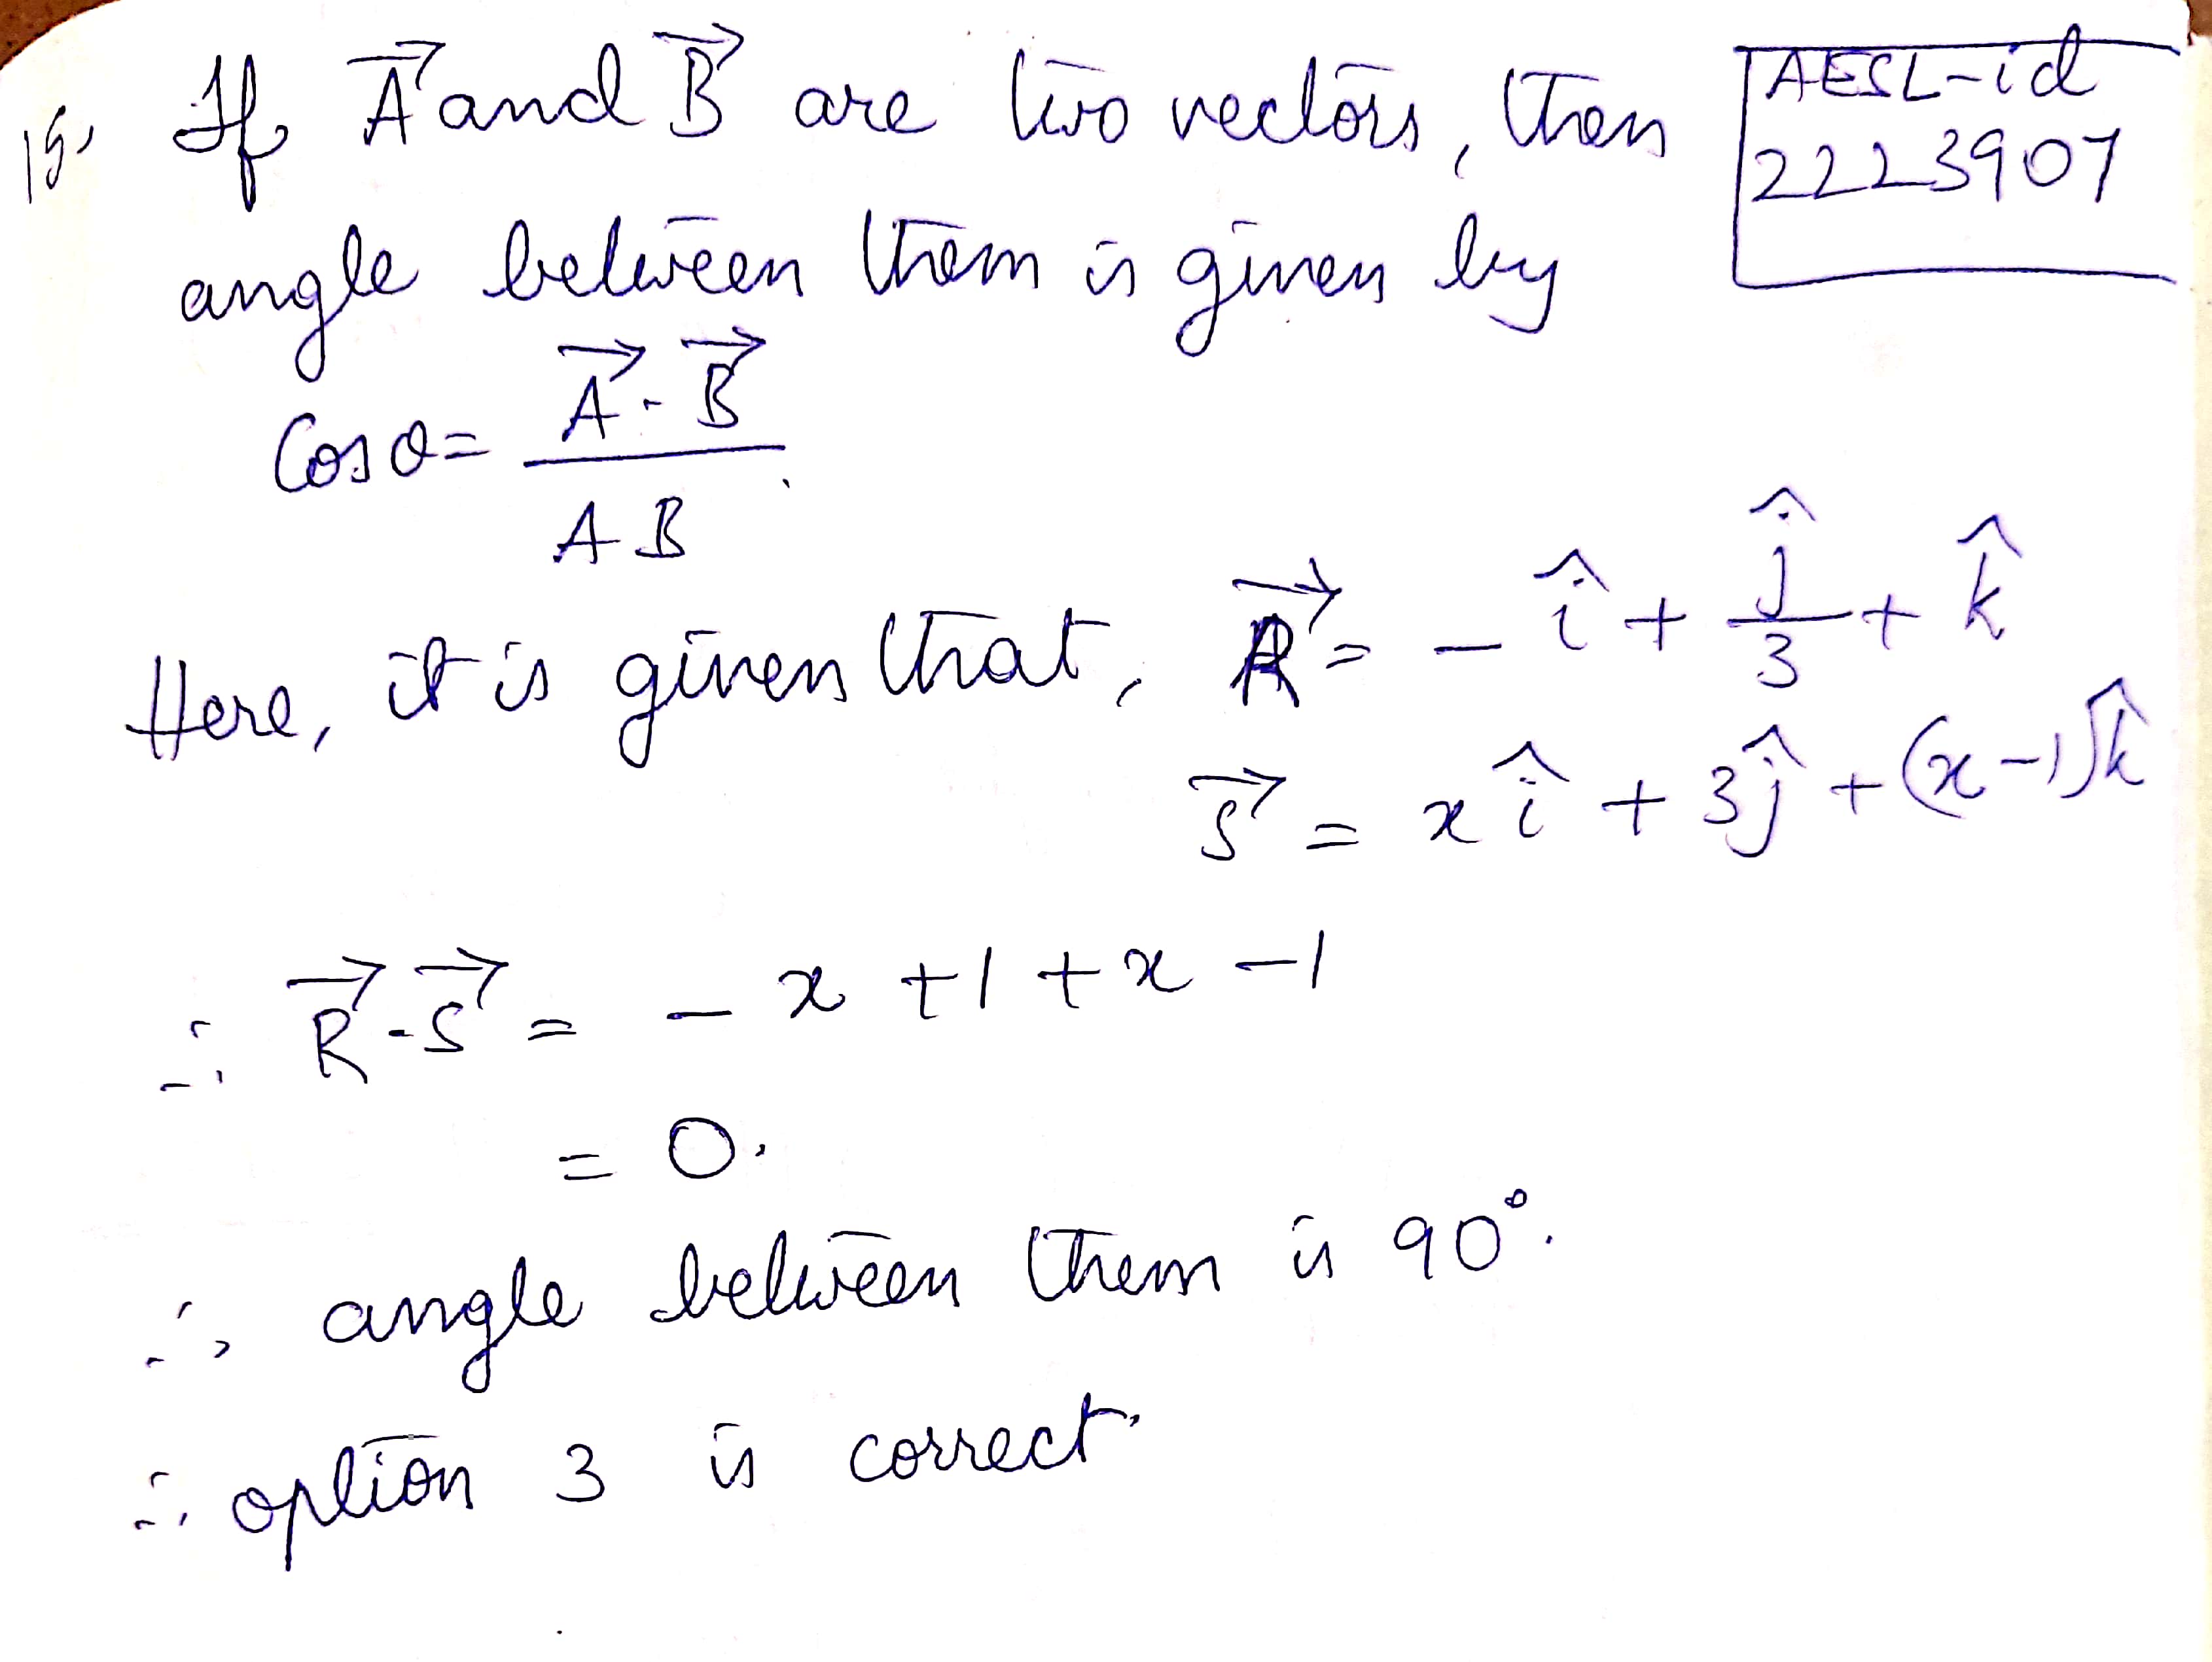 15. If A⃗ and B⃗ are two vectors, then
AESL-id
2223907
angle between them is given by
Cos θ = (A⃗ · B⃗) / AB
Here, it is given that, R⃗ = - î + ĵ/3 + k̂
S⃗ = x î + 3ĵ + (x-1)k̂
∴ R⃗·S⃗ = - x +1 + x -1
= 0.
∴ angle between them is 90°.
∴ option 3 is correct.